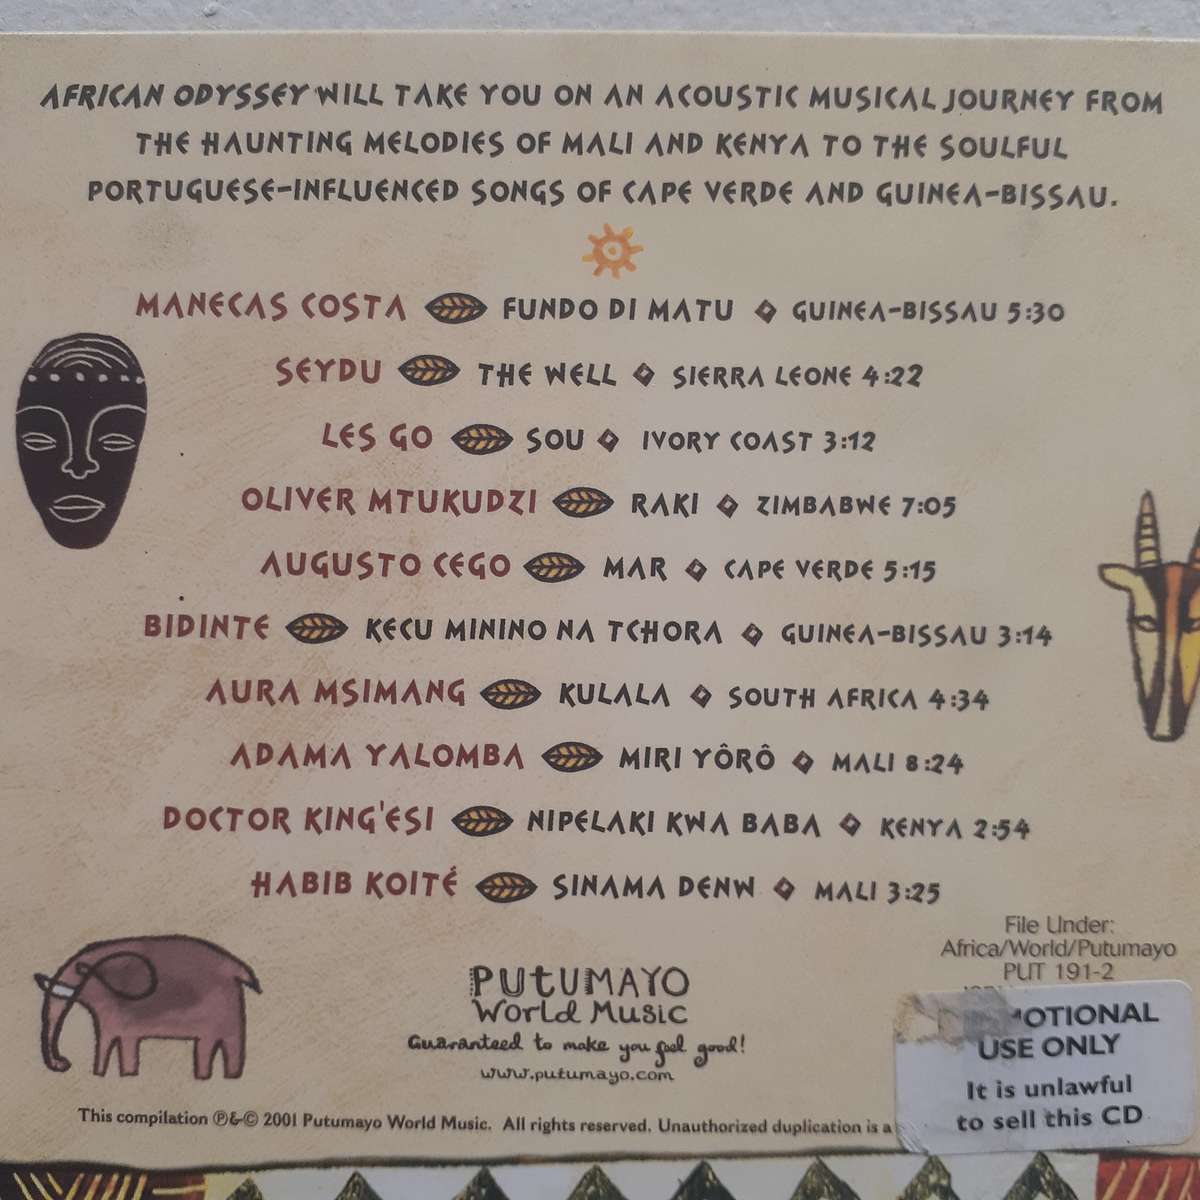 AFRICAN ODYSSEY WILL TAKE YOU ON AN ACOUSTIC MUSICAL JOURNEY FROM
THE HAUNTING MELODIES OF MALI AND KENYA TO THE SOULFUL
PORTUGUESE-INFLUENCED SONGS OF CAPE VERDE AND GUINEA-BISSAU.
MANECAS COSTA FUNDO DI MATU GUINEA-BISSAU 5:30
SEYDU THE WELL SIERRA LEONE 4:22
LES GO SOU IVORY COAST 3:12
OLIVER MTUKUDZI RAKI ZIMBABWE 7:05
AUGUSTO CEGO MAR CAPE VERDE 5:15
BIDINTE KECU MININO NA TCHORA GUINEA-BISSAU 3:14
AURA MSIMANG KULALA SOUTH AFRICA 4:34
ADAMA YALOMBA MIRI YÔRÔ MALI 8:24
DOCTOR KING'ESI NIPELAKI KWA BABA KENYA 2:54
HABIB KOITÉ SINAMA DENW MALI 3:25
File Under:
Africa/World/Putumayo
PUT 191-2
PUTUMAYO
World Music
Guaranteed to make you feel good!
www.putumayo.com
OTIONAL
USE ONLY
It is unlawful
to sell this CD
This compilation ℗&© 2001 Putumayo World Music. All rights reserved. Unauthorized duplication is a